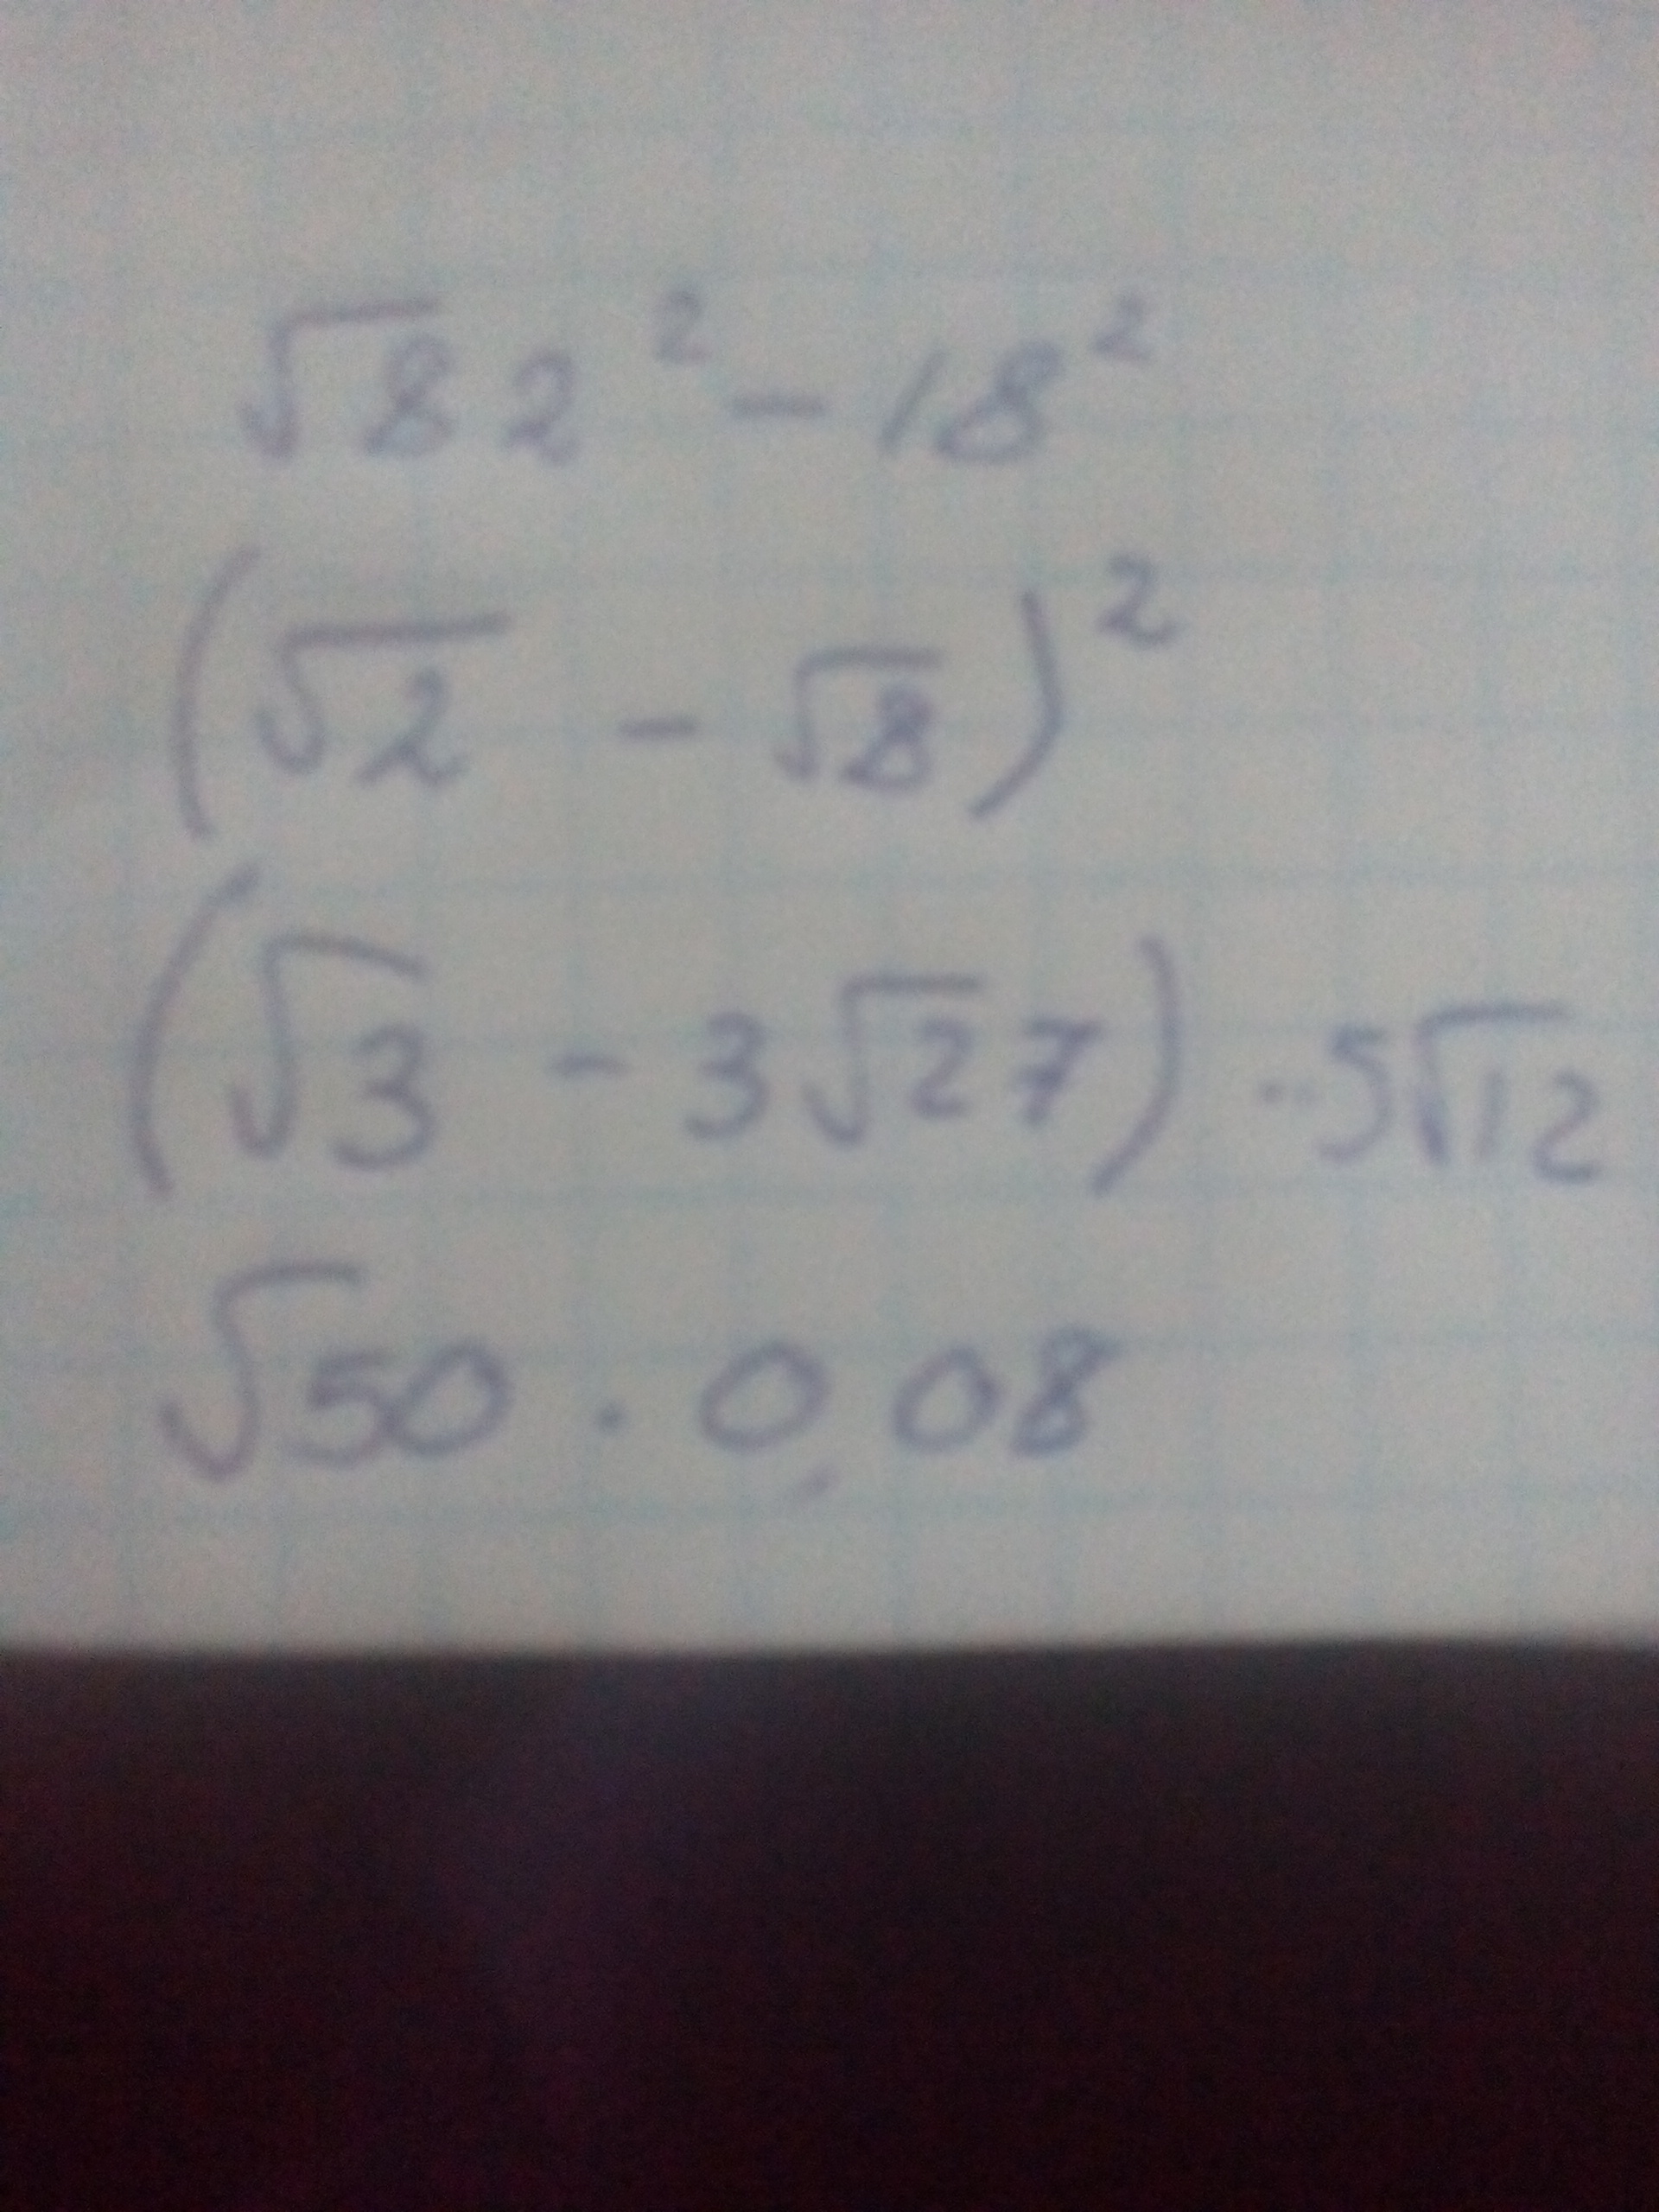 √82² - 18²
(√2 - √8)²
(√3 - 3√27) · 5√12
√50 · 0,08